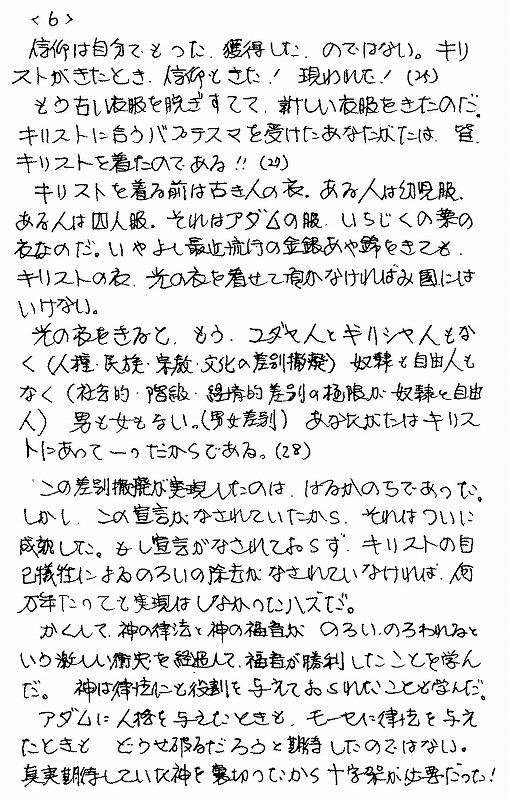 <6>
信仰は自分でもった、獲得した、のではない。キリ
ストがきたとき、信仰もきた！現われた！(25)
もう古い衣服を脱ぎすてて、新しい衣服をきたのだ。
キリストに合うバプテスマを受けたあなたがたは、皆、
キリストを着たのである!! (27)
キリストを着る前は古き人の衣。ある人は幼児服、
ある人は囚人服。それはアダムの服、いちじくの葉の
衣なのだ。いやよし最近流行の金銀あや錦をきても、
キリストの衣、光の衣を着せて頂かなければみ国には
いけない。
光の衣をきると、もう、ユダヤ人とギリシヤ人もな
く（人種・民族・宗教・文化の差別撤廃）奴隷も自由人も
なく（社会的・階級・経済的差別の極限が奴隷と自由
人）男も女もない。（男女差別）あなたがたはキリス
トにあって一つだからである。(28)
この差別撤廃が実現したのは、はるかのちであった。
しかし、この宣言がなされていたから、それはついに
成就した。もし宣言がなされておらず、キリストの自
己犠牲によるのろいの除去がなされていなければ、何
万年たっても実現はしなかったハズだ。
かくして、神の律法と神の福音が のろい、のろわれると
いう激しい衝突を経過して、福音が勝利したことを学ん
だ。神は律法にも役割を与えておられたことも学んだ。
アダムに人格を与えたときも、モーセに律法を与え
たときも どうせ破るだろうと期待したのではない。
真実期待していた神を裏切ったから十字架が必要だった！